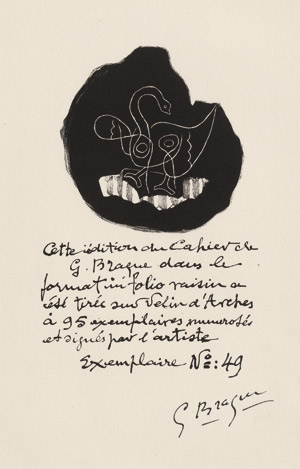 Cette édition du Cahier de
G. Braque dans le
format in folio raisin a
été tirée sur Vélin d'Arches
à 95 exemplaires numerotés
et signés par l'artiste
Exemplaire No: 49
G Braque